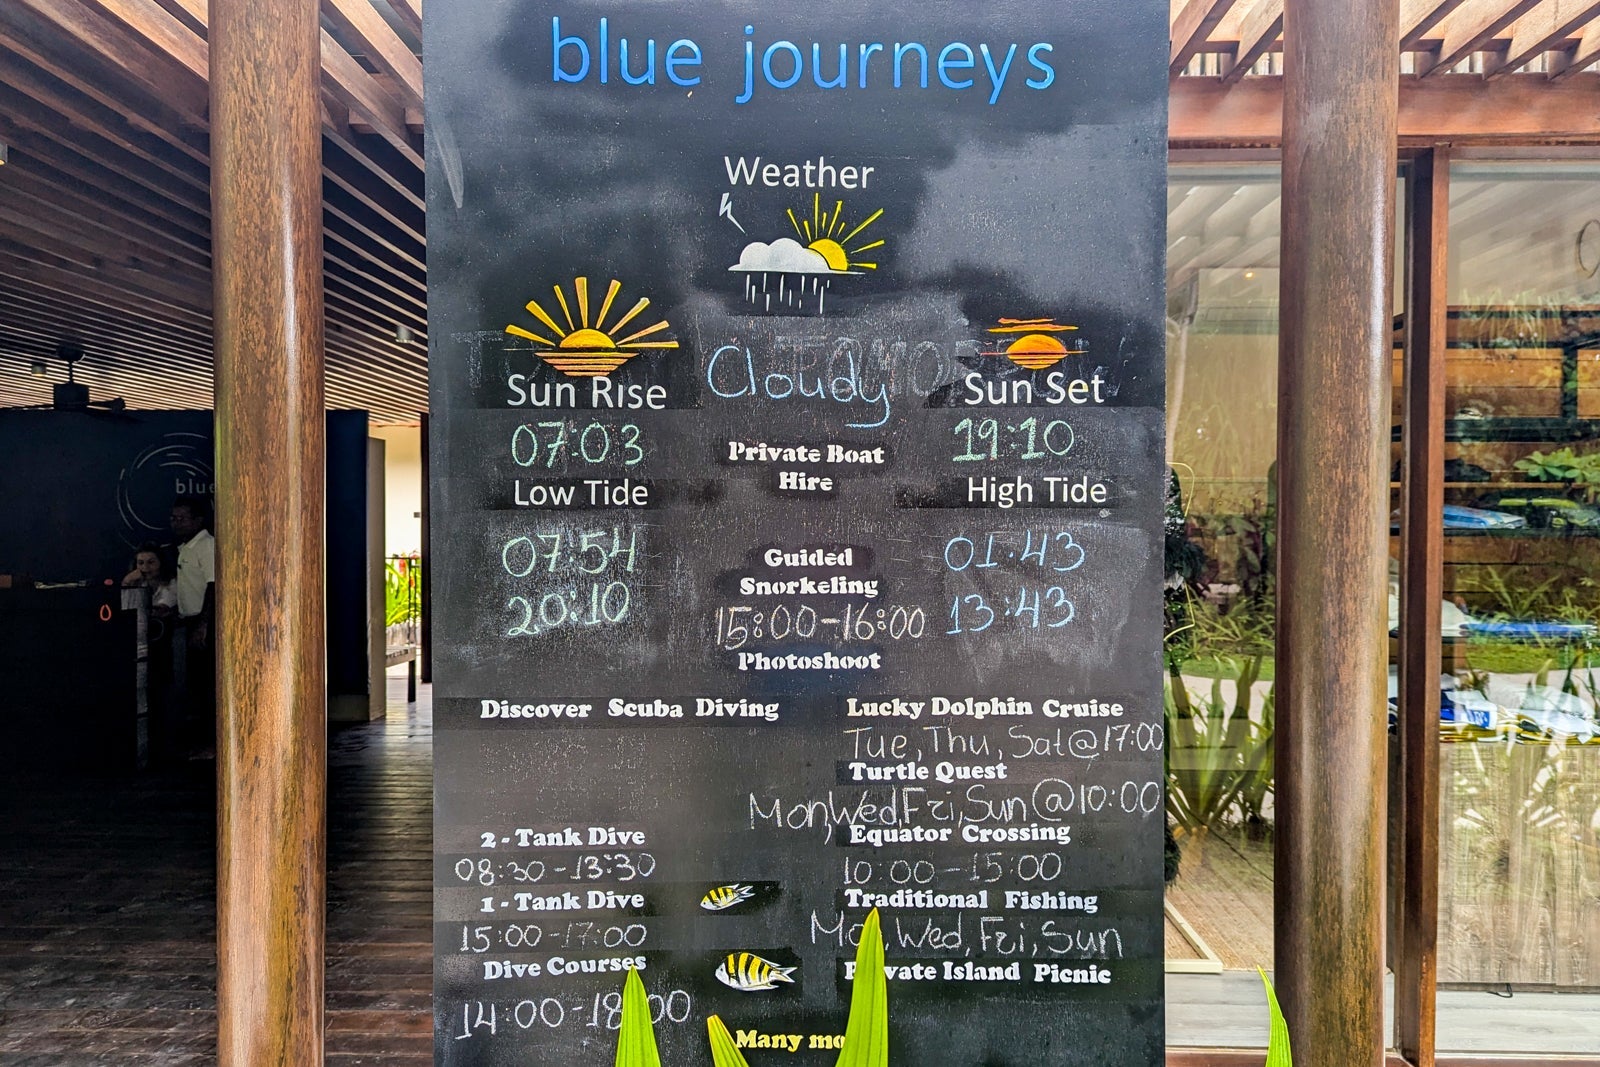 blue journeys
Weather
Cloudy
Sun Rise
07:03
Low Tide
07:54
20:10
Sun Set
19:10
High Tide
01:43
13:43
Private Boat
Hire
Guided
Snorkeling
15:00-16:00
Photoshoot
Discover Scuba Diving
2-Tank Dive
08:30-13:30
1-Tank Dive
15:00-17:00
Dive Courses
14:00-18:00
Lucky Dolphin Cruise
Tue, Thu, Sat@17:00
Turtle Quest
Mon, Wed, Fri, Sun@10:00
Equator Crossing
10:00-15:00
Traditional Fishing
Wed, Fri, Sun
Private Island Picnic
Many
blue